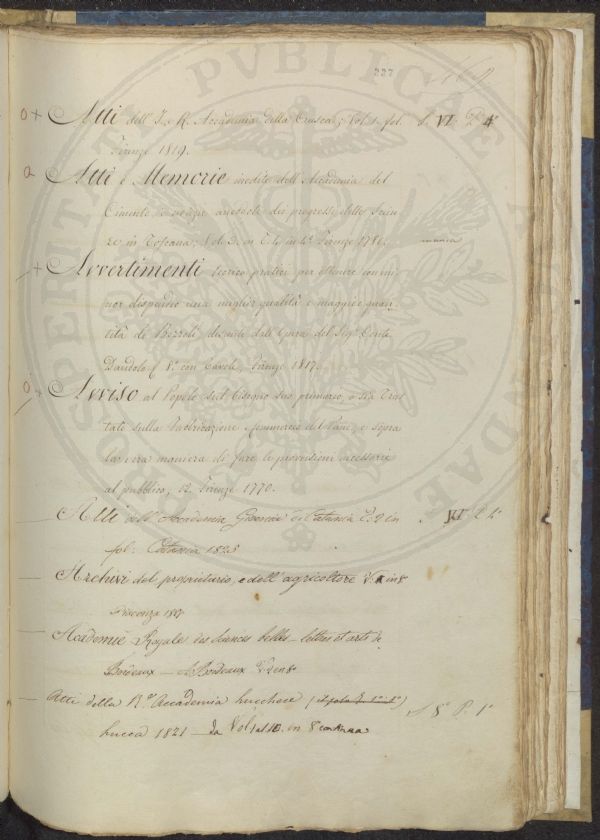 227
Atti dell' I. e R. Accademia della Crusca; Vol. 1. fol. S. VI. P. 4
Firenze 1819.
Atti e Memorie inedite dell' Accademia del
Cimento e notizie aneddote dei progressi delle Scien
ze in Toscana, Vol. 3. in 4.º Firenze 1780. manca
Avvertimenti teorico pratici per ottenere con mi
nor dispendio una miglior qualità e maggior quan
tità di Bozzoli, desunti dall' Opera del Sig.r Conte
Dandolo, 8.º con Tavole, Firenze 1817.
Avviso al Popolo sul bisogno suo primario, o sia Trat
tato sulla Fabbricazione e commercio del Pane, e sopra
la vera maniera di fare le provvisioni necessarie
al pubblico, 12. Firenze 1770.
Atti dell' Accademia Gioenia di Catania T. 2 in S. VI. P.
fol: Catania 1825
Archivi del proprietario, e dell' agricoltore V. in 8
Piacenza 18
Academie Royale des Sciences belles-lettres et arts de
Bordeaux — A Bordeaux V. en 8
Atti della R. Accademia lucchese S. 8 P. 1
Lucca 1821 — da Vol. 1 al 10. in 8º continua
PVBLICAE
PROSPERITATI
AVGENDAE